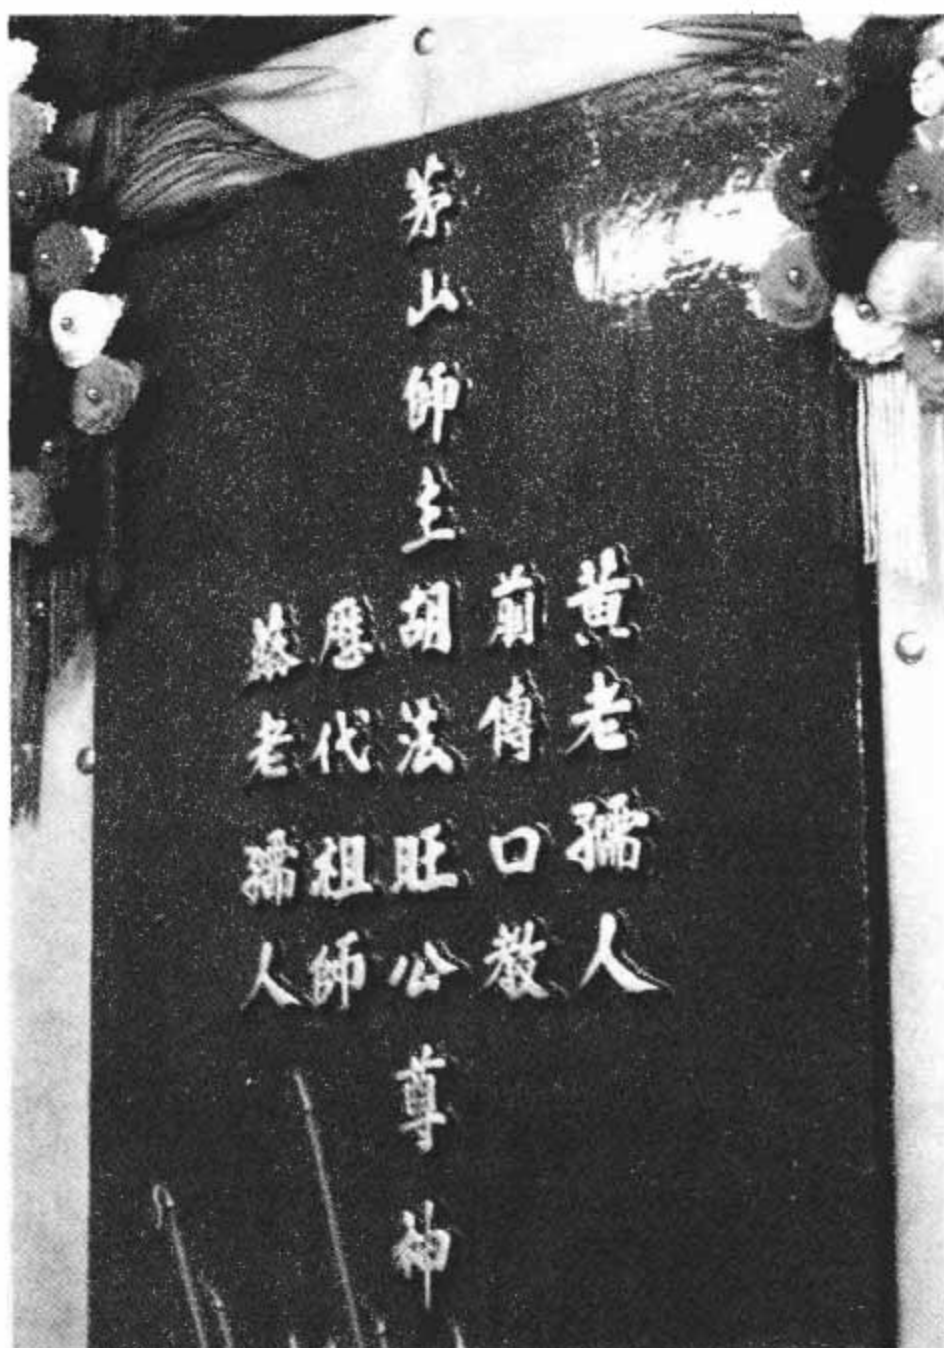 黃老孺人
前傳口教
茅山師主胡法旺公尊神
歷代祖師
蔡老孺人